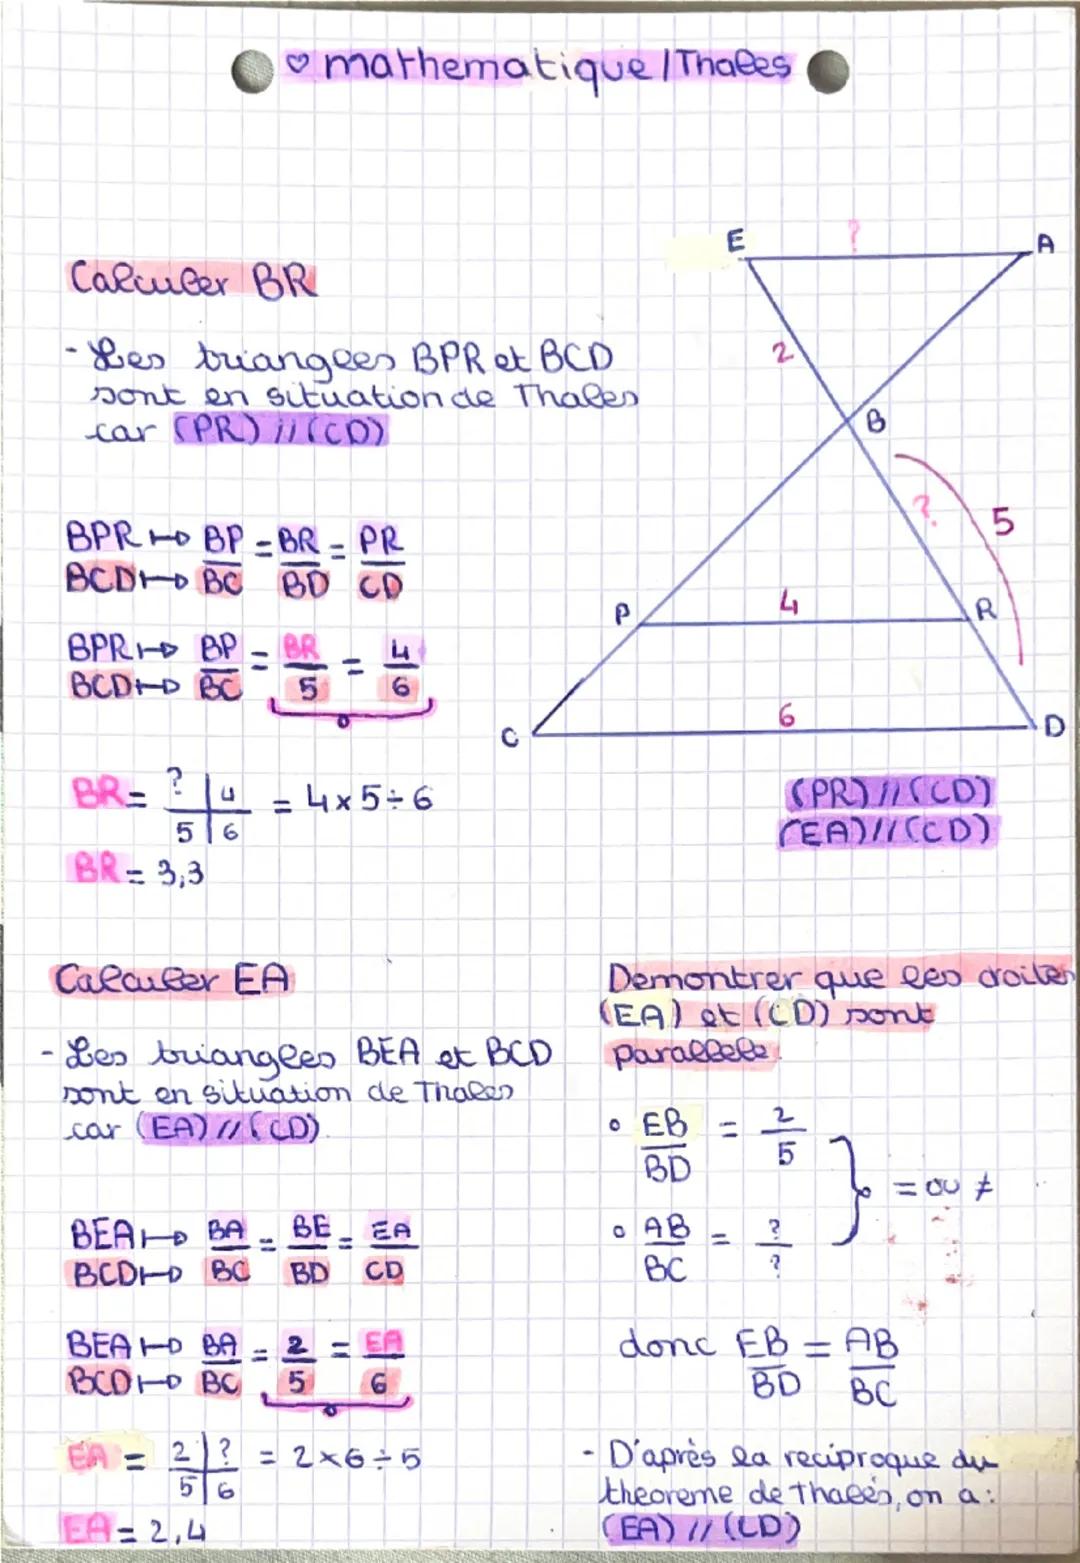 ♡ mathematique / Thales
Calculer BR
- Les triangles BPR et BCD
sont en situation de Thales
car (PR) // (CD)
BPR ↦ BP = BR = PR
BCD ↦ BC BD CD
BPR ↦ BP = BR = 4
BCD ↦ BC 5 6
BR = ? | 4 = 4 x 5 ÷ 6
5 | 6
BR = 3,3
E ? A
2
B
? 5
P 4 R
C 6 D
(PR) // (CD)
(EA) // (CD)
Calculer EA
- Les triangles BEA et BCD
sont en situation de Thales
car (EA) // (CD)
BEA ↦ BA = BE = EA
BCD ↦ BC BD CD
BEA ↦ BA = 2 = EA
BCD ↦ BC 5 6
EA = 2 | ? = 2 x 6 ÷ 5
5 | 6
EA = 2,4
Demontrer que les droites
(EA) et (CD) sont
parallele.
° EB = 2
BD 5
= ou ≠
° AB = ?
BC ?
donc EB = AB
BD BC
- D'après la reciproque du
theoreme de thalès, on a :
(EA) // (CD)